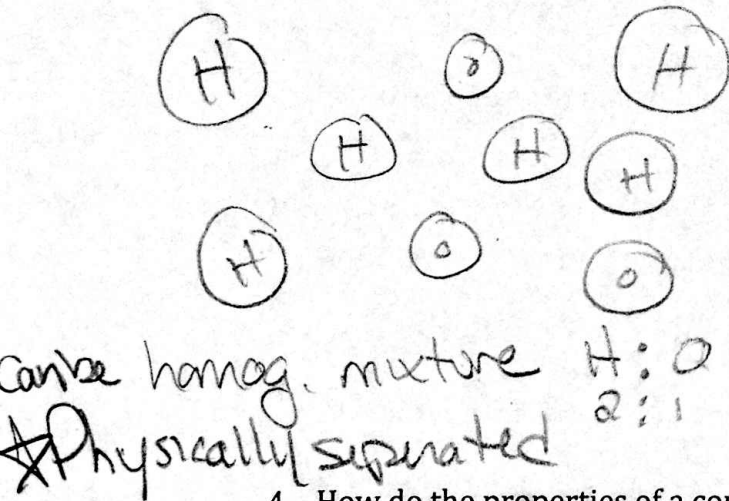 H O H
H H H
H O O
can be homog. mixture H : O
2 : 1
☆Physically seperated
4. How do the properties of a co